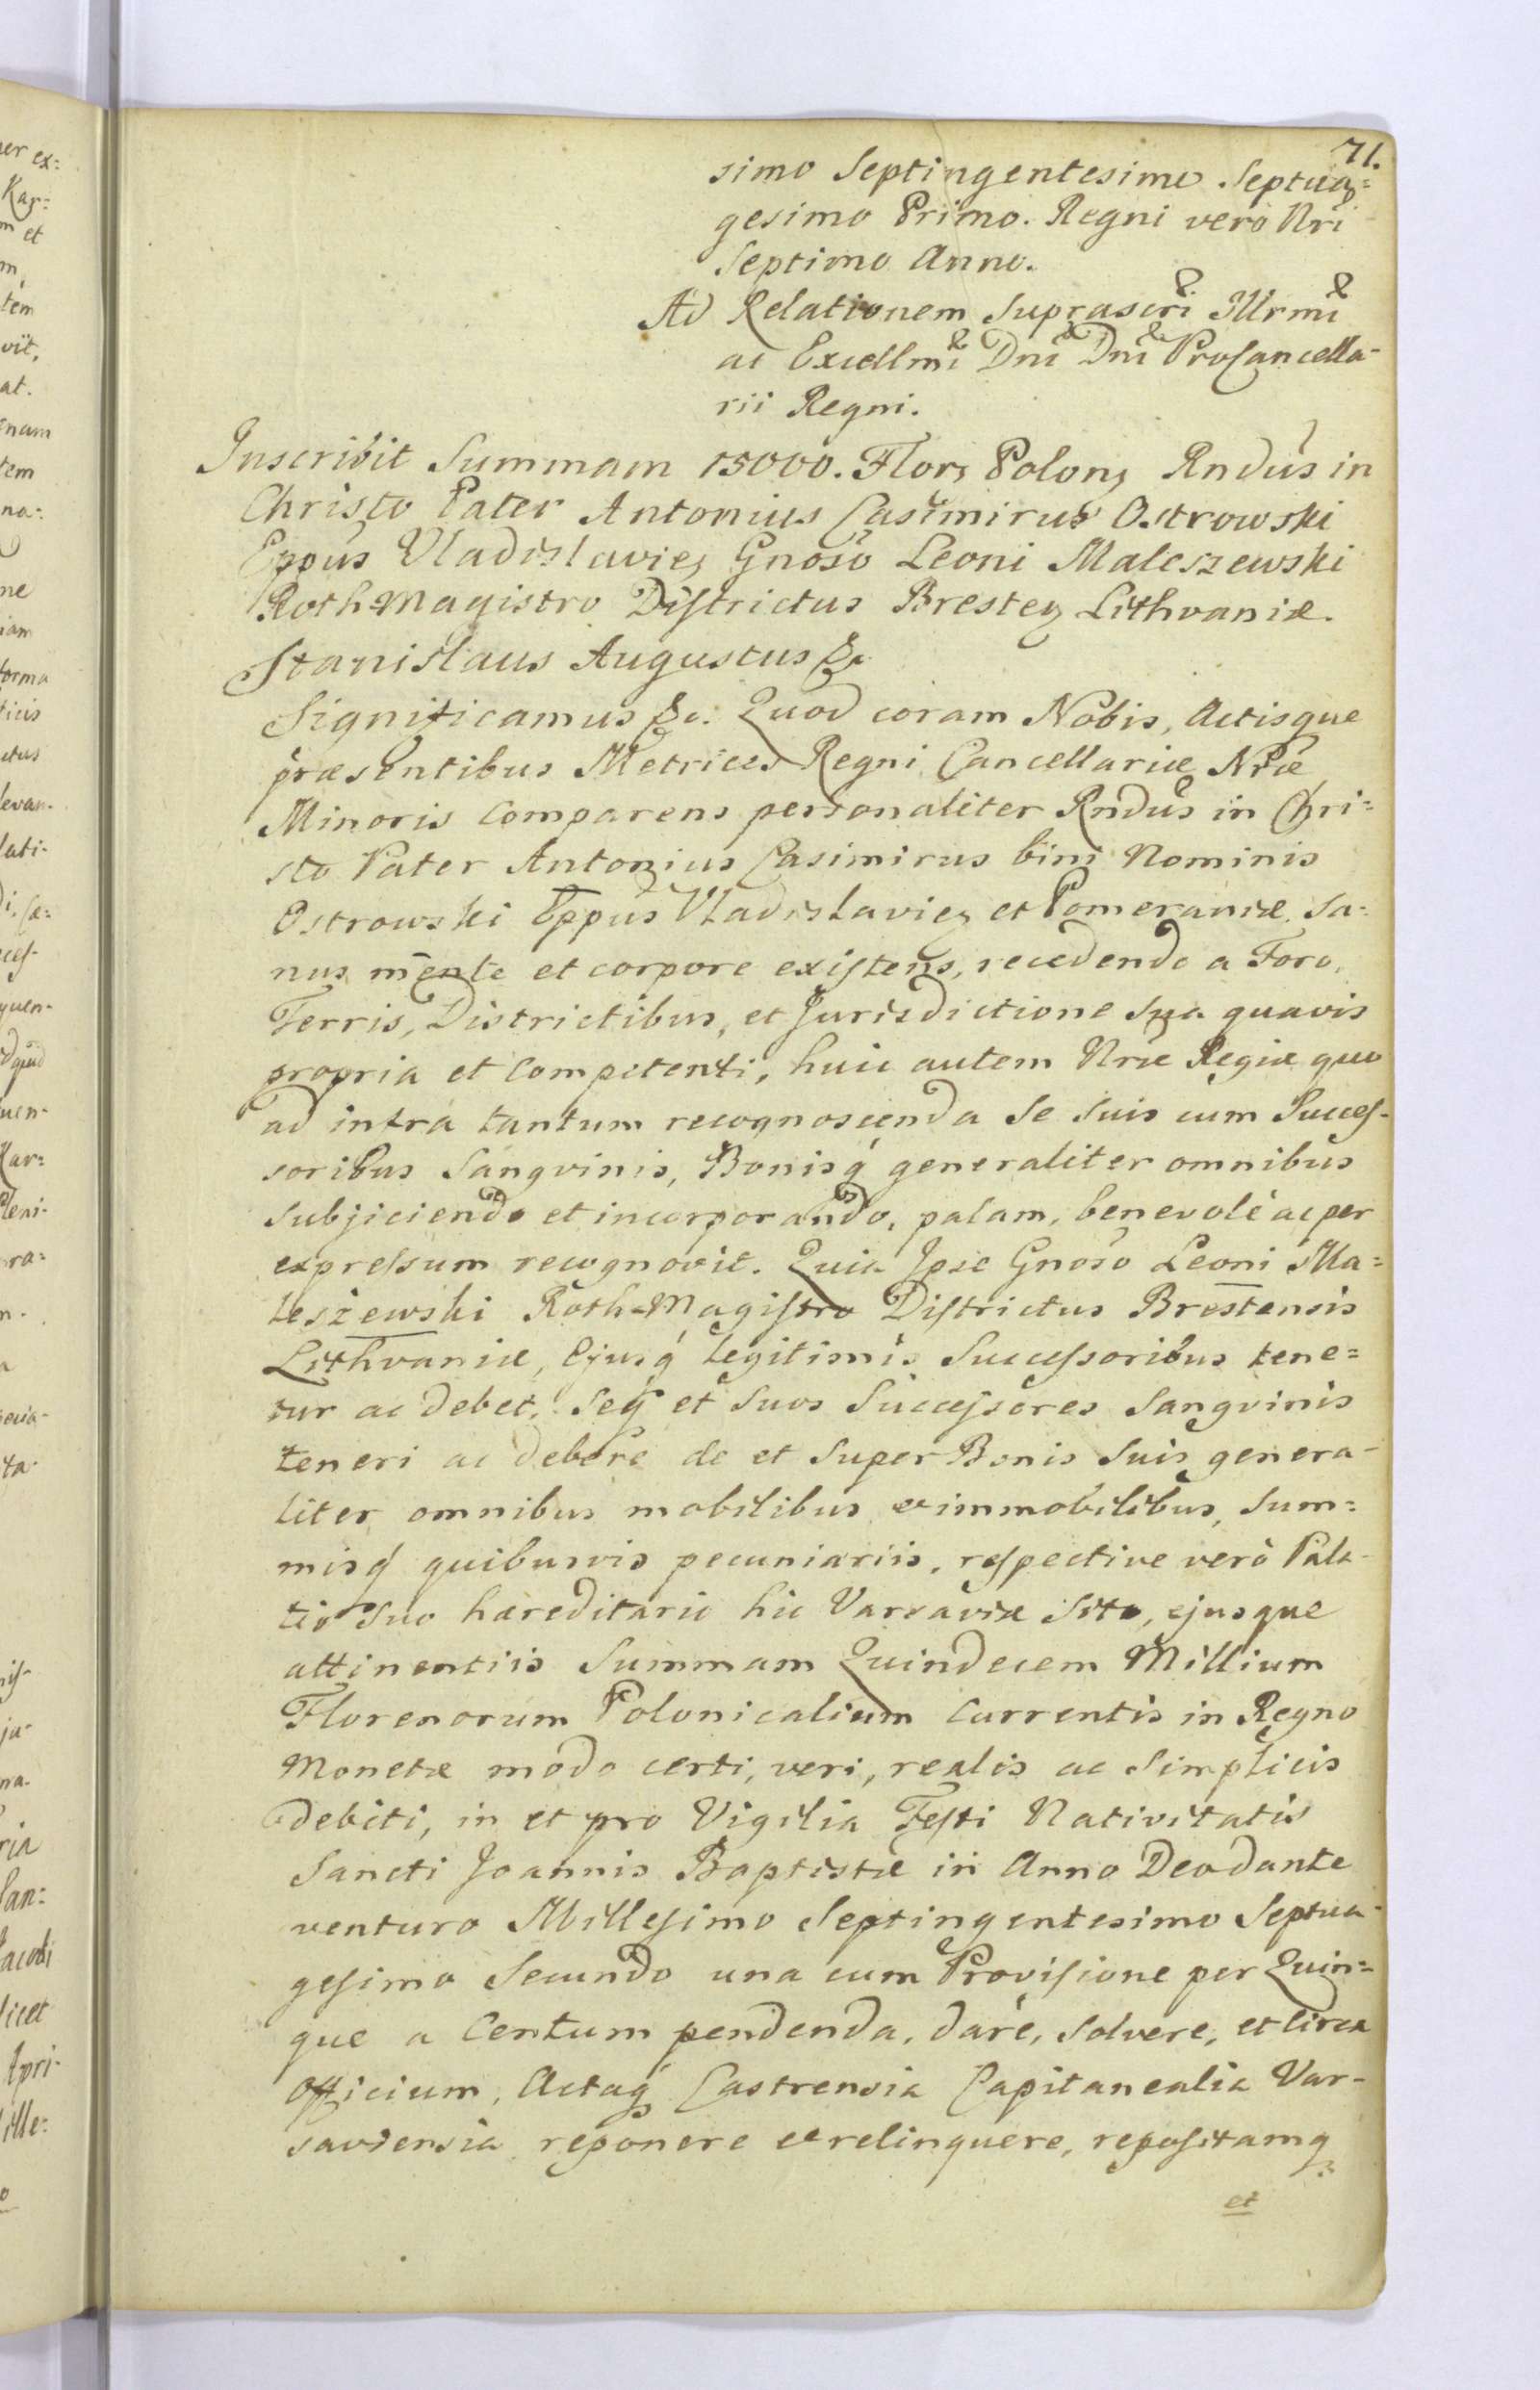 71.
simo Septingentesimo Septua=
gesimo Primo. Regni verò Nri
Septimo Anno.
Ad Relationem Suprascri Illrmi
ac Excellmi Dni Dni ProCancella-
rii Regni.
Inscribit Summam 15000. Flor, Polon, Rndus in
Christo Pater Antonius Casimirus Ostrowski
Eppus Vladislavien, Gnoso Leoni Maleszewski
Roth-Magistro Districtus Bresten, Lithvaniæ.
Stanislaus Augustus &c
Significamus &c. Quod coram Nobis, Actisque
præsentibus Metrices Regni Cancellariæ Nræ
Minoris Comparens personaliter Rndus in Chri=
sto Pater Antonius Casimirus bini Nominis
Ostrowski Eppus Vladislavien, et Pomeraniæ, Sa=
nus mente et corpore existens, recedendo a Foro,
Terris, Districtibus, et Jurisdictione Sua quavis
propria et Competenti, huic autem Nræ Regiæ quo
ad infra tantum recognoscenda Se Suis cum Succes-
soribus Sangvinis, Bonisq́ generaliter omnibus
Subjiciendo et incorporando, palam, benevolè ac per
expressum recognovit. Quia Ipse Gnoso Leoni Ma=
leszewski Roth-Magistro Districtus Brestensis
Lithvaniæ, Ejusq́ Legitimis Successoribus tene=
tur ac debet, Seq́ et Suos Successores Sangvinis
teneri ac debere de et Super Bonis Suis genera-
liter omnibus mobilibus et immobilibus, Sum=
misq́ quibusvis pecuniariis, respective verò Pala-
tio Suo hæreditario hic Varsaviæ Sito, ejusque
attinentiis Summam Quindecem Millium
Florenorum Polonicalium Currentis in Regno
Monetæ modo certi, veri, realis ac Simplicis
debiti, in et pro Vigilia Festi Nativitatis
Sancti Joannis Baptistæ in Anno Deo dante
venturo Millesimo Septingentesimo Septua-
gesimo Secundo una cum Provisione per Quin=
que a Centum pendenda, dare, Solvere, et Circa
Officium, Actaq́ Castrensia Capitanealia Var-
saviensia reponere et relinquere, repositamq́
et